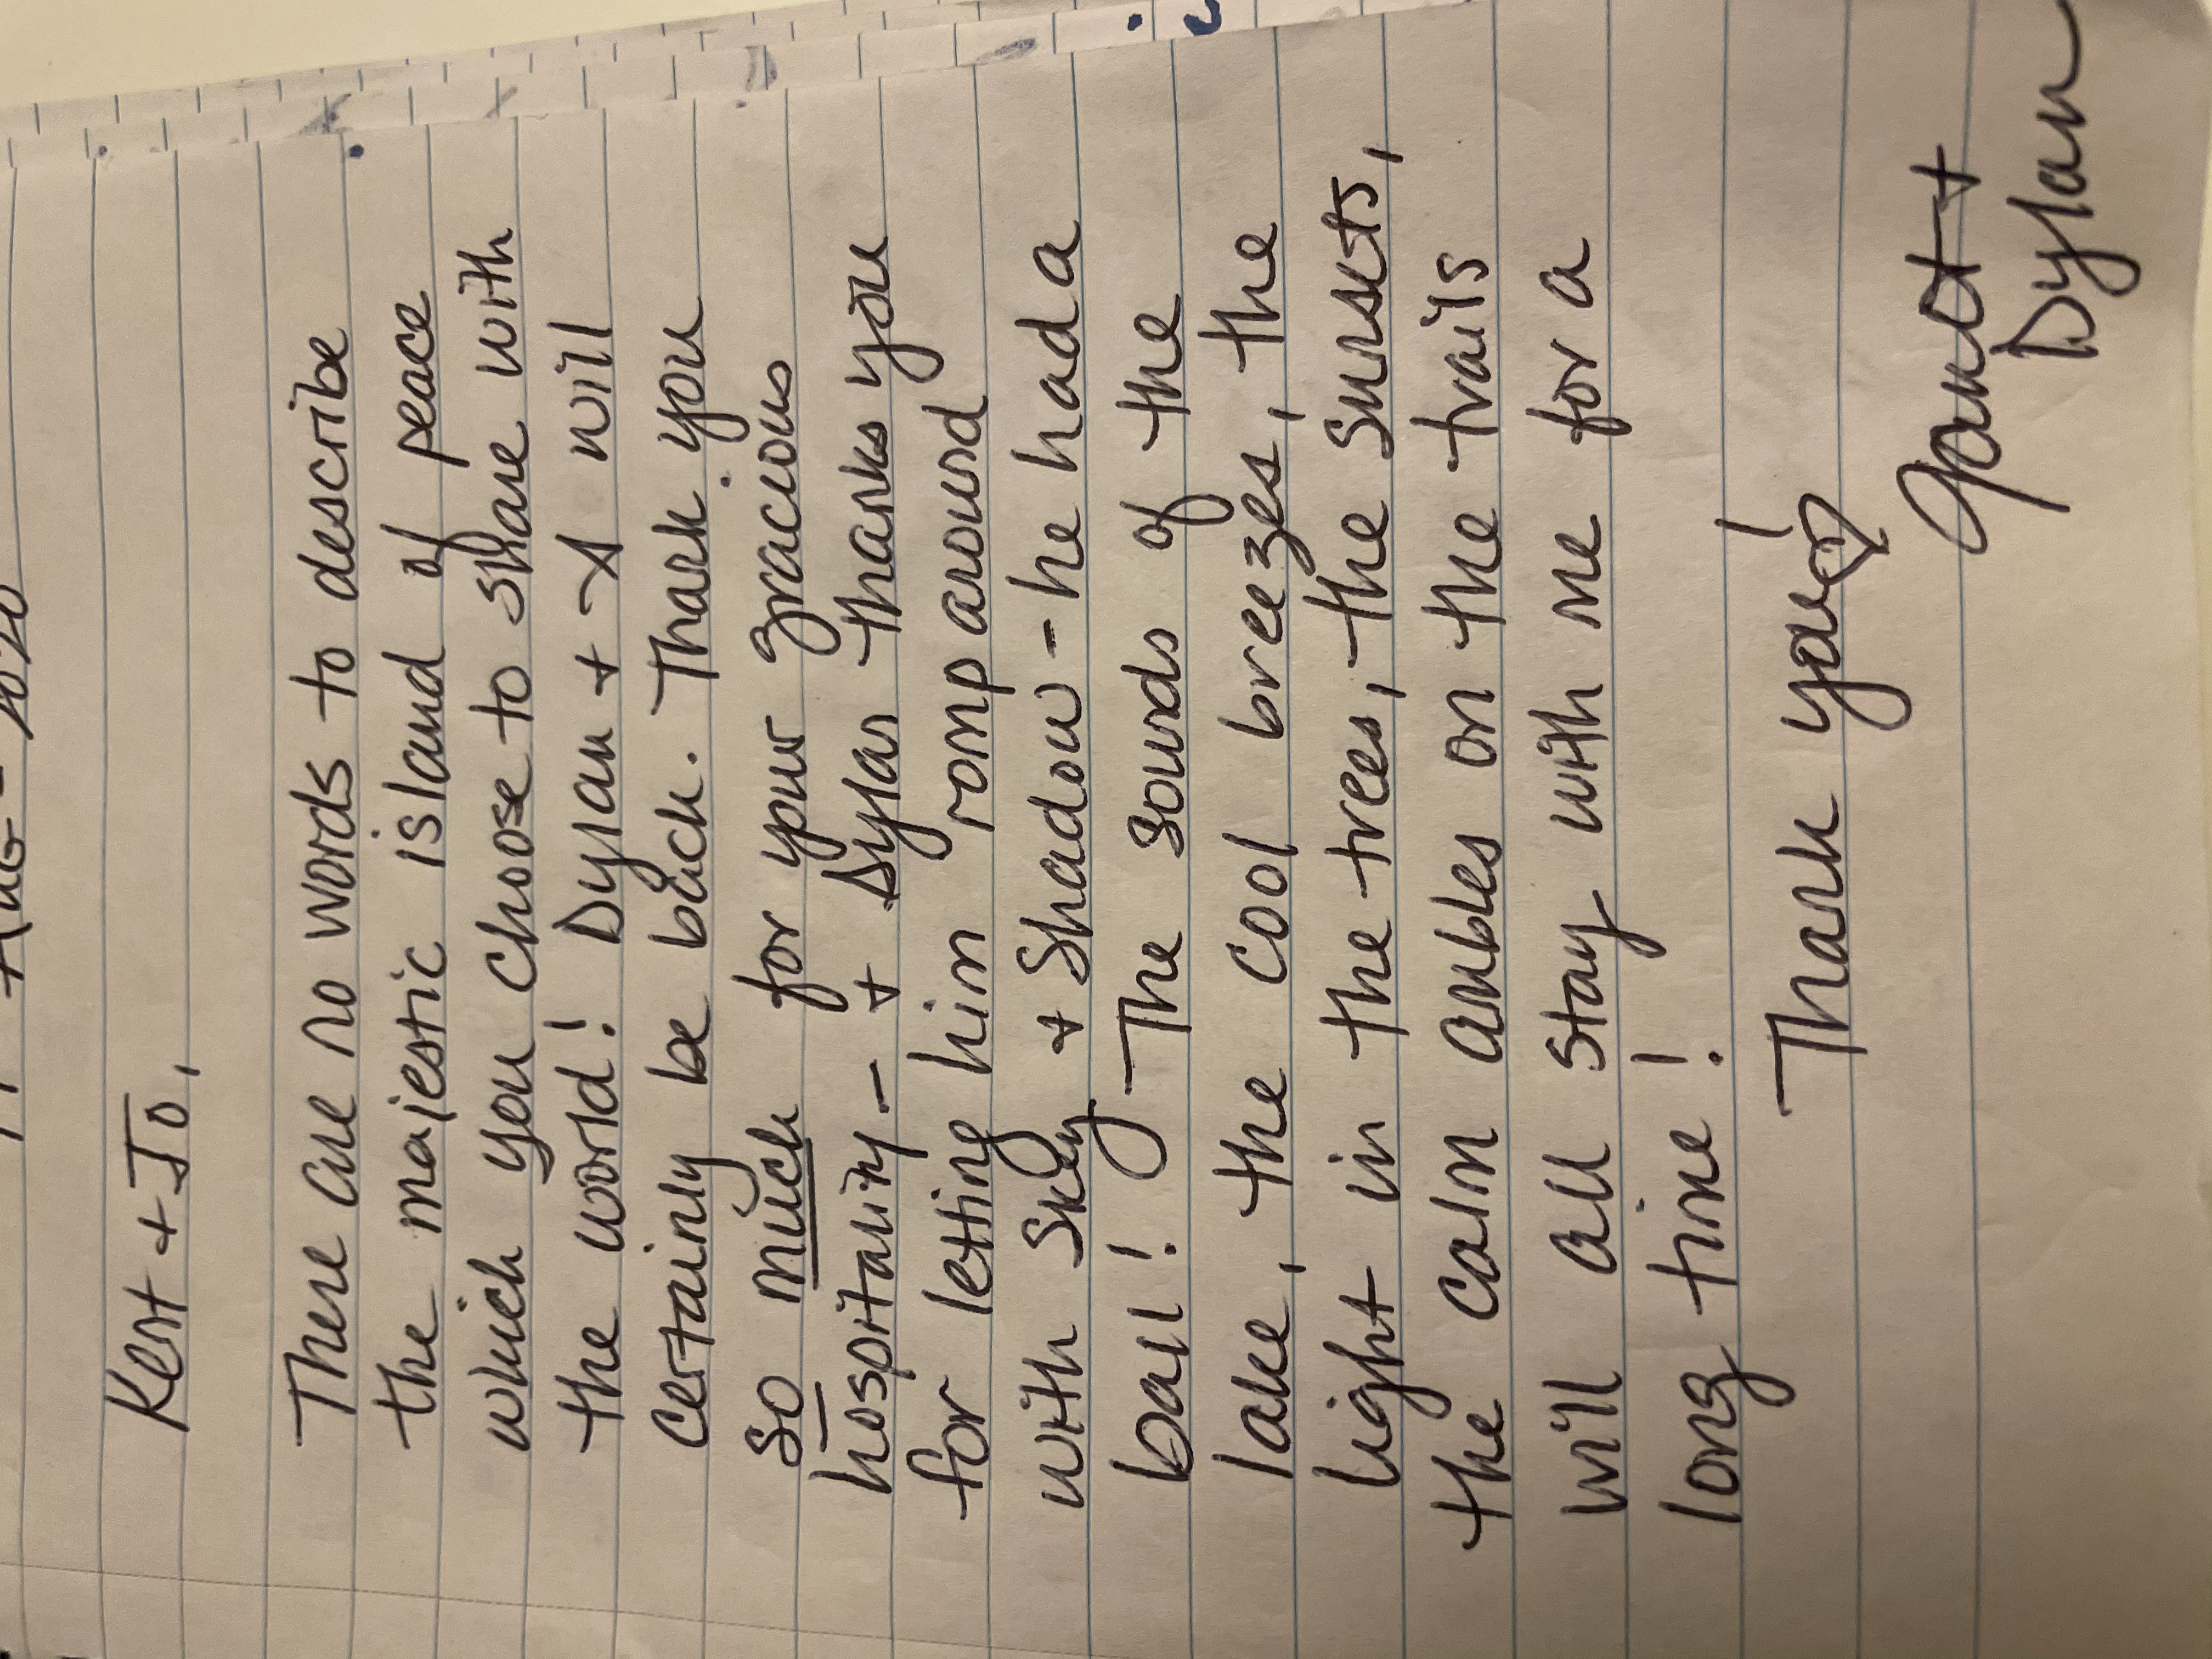 Aug - 2020
Kent + Jo,
There are no words to describe
the majestic island of peace
which you choose to share with
the world! Dylan + I will
certainly be back. Thank you
so much for your gracious
hospitality - + Dylan thanks you
for letting him romp around
with Skey + Shadow - he had a
ball! The sounds of the
lake, the cool breezes, the
light in the trees, the sunsets,
the calm ambles on the trails
will all stay with me for a
long time!
Thank you!
Janet +
Dylan